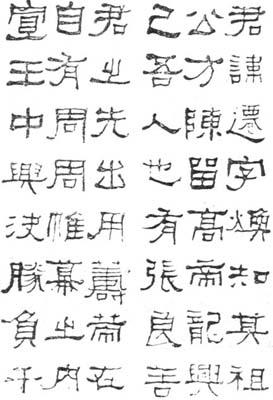 君諱遷字煥知其祖
公方陳留高帝龍興
己吾人也有張良善
君之先出用籌策在
自有周周帷幕之內
宣王中興決勝負千